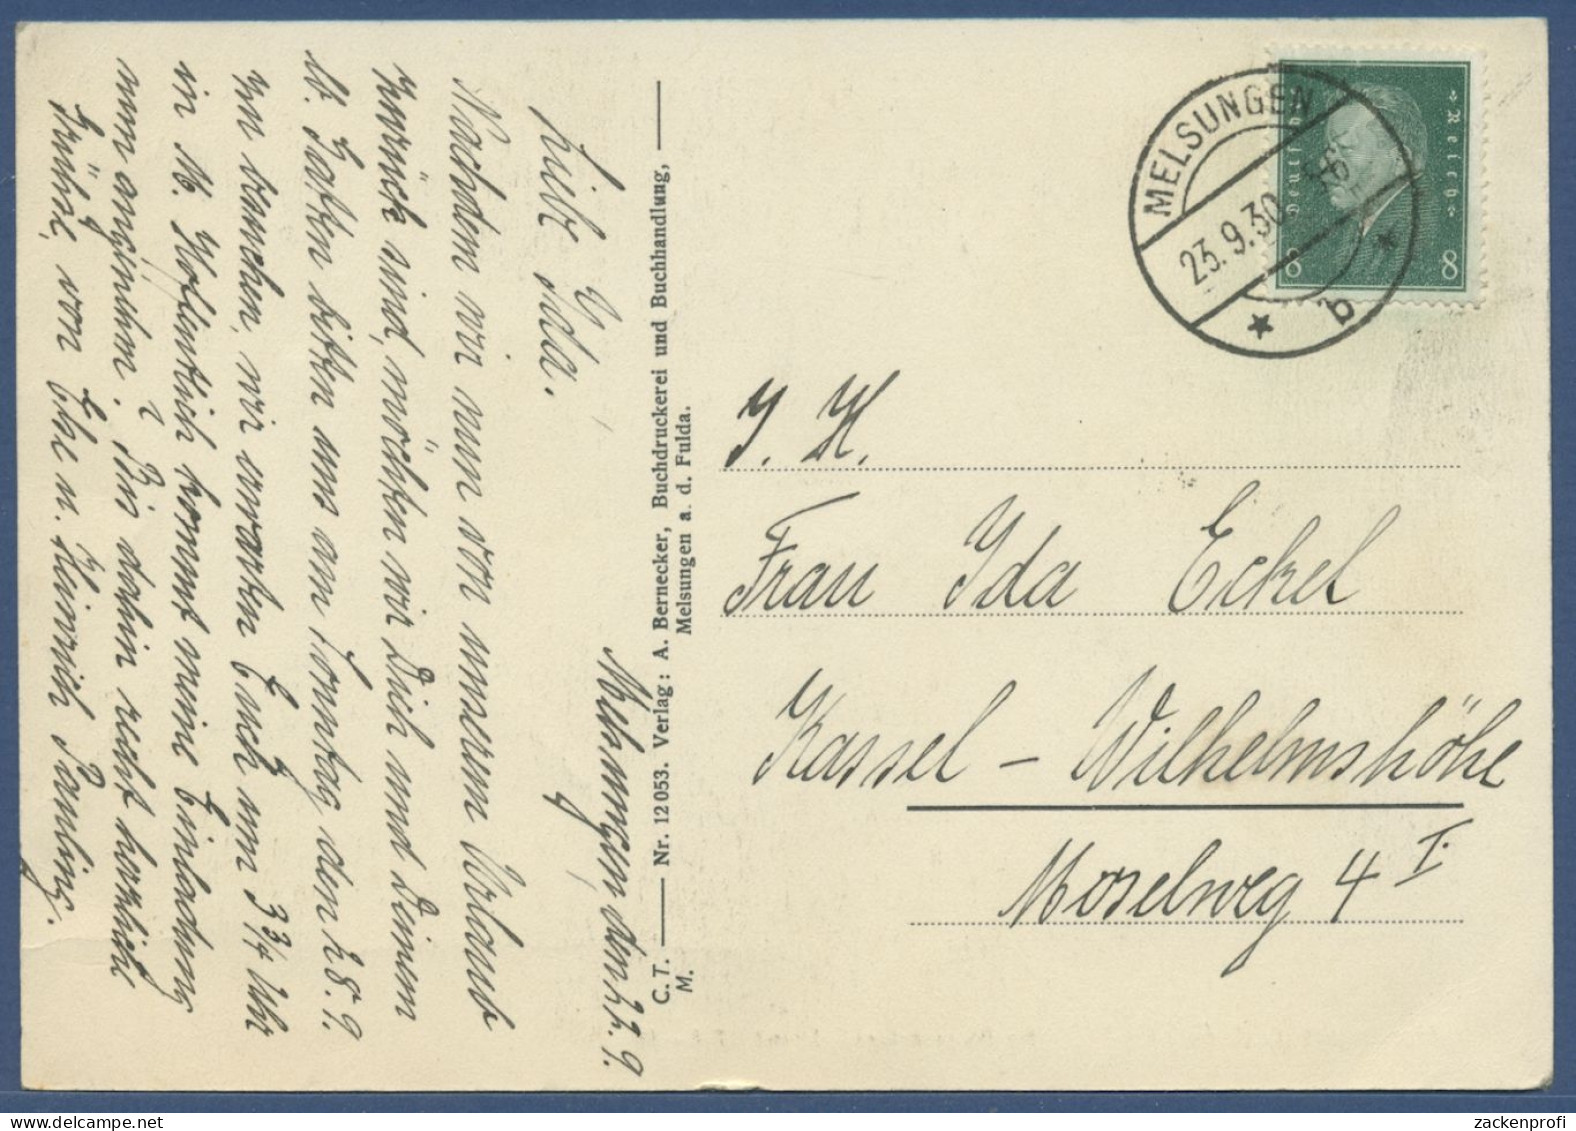 Melsungen, den 22. 9.
Liebe Ida.
Nachdem wir nun von unserem Urlaub
zurück sind, möchten wir Dich und Deinen
lb. Gatten bitten uns am Sonntag, den 28. 9.
zu besuchen, wir erwarten Euch um 3 3/4 Uhr
in M. Hoffentlich kommt meine Einladung
nun angenehm. Bis dahin recht herzliche
Grüße, von Else u. Heinrich Pauling.
C. T. — Nr. 12053. Verlag: A. Bernecker, Buchdruckerei und Buchhandlung, —
M. Melsungen a. d. Fulda.
MELSUNGEN
23.9.30
b
Deutsches
Reich
8 8
I. H.
Frau Ida Eckel
Kassel – Wilhelmshöhe
Moselweg 4 I.
zackenprofi